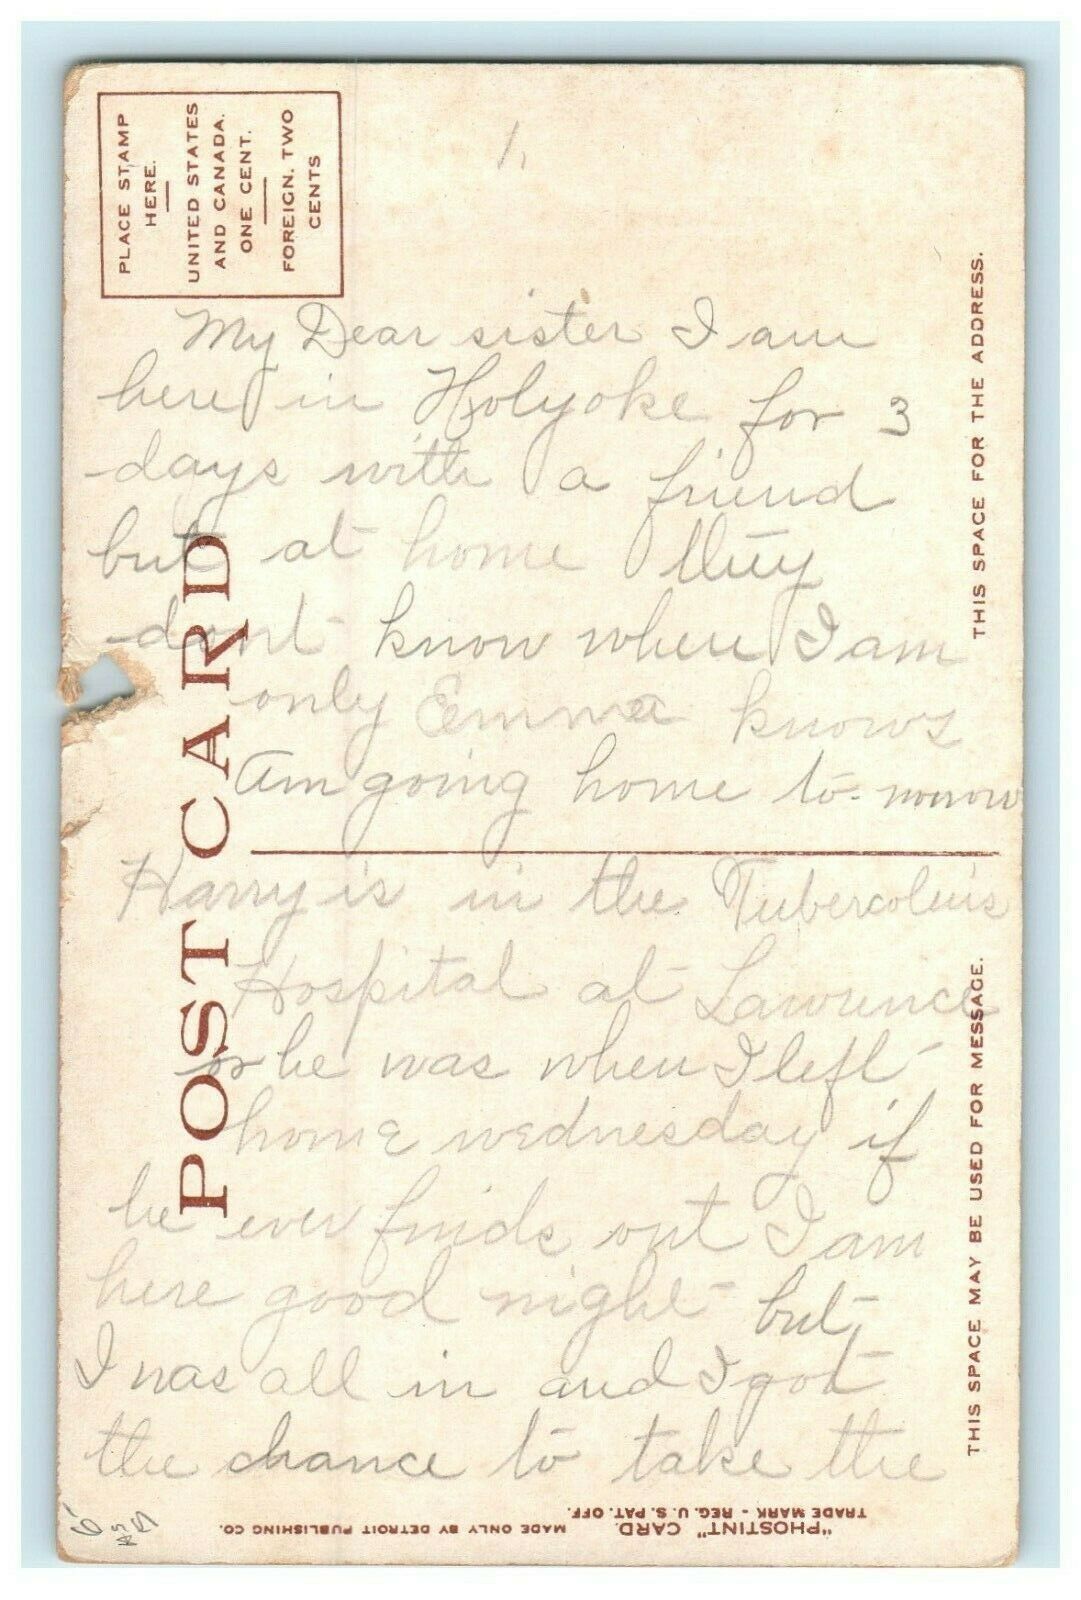 PLACE STAMP
HERE.
UNITED STATES
AND CANADA.
ONE CENT.
FOREIGN. TWO
CENTS
1.
My Dear sister I am
here in Holyoke for 3
days with a friend
but at home they
dont know where I am
only Emma knows
am going home to-morrow
Harry is in the Tubercoluis
Hospital at Lawrence
or he was when I left
home wednesday if
he ever finds out I am
here good night but
I was all in and I got
the chance to take the
POST CARD
THIS SPACE FOR THE ADDRESS.
THIS SPACE MAY BE USED FOR MESSAGE.
"PHOSTINT" CARD. MADE ONLY BY DETROIT PUBLISHING CO.
TRADE MARK - REG. U. S. PAT. OFF.